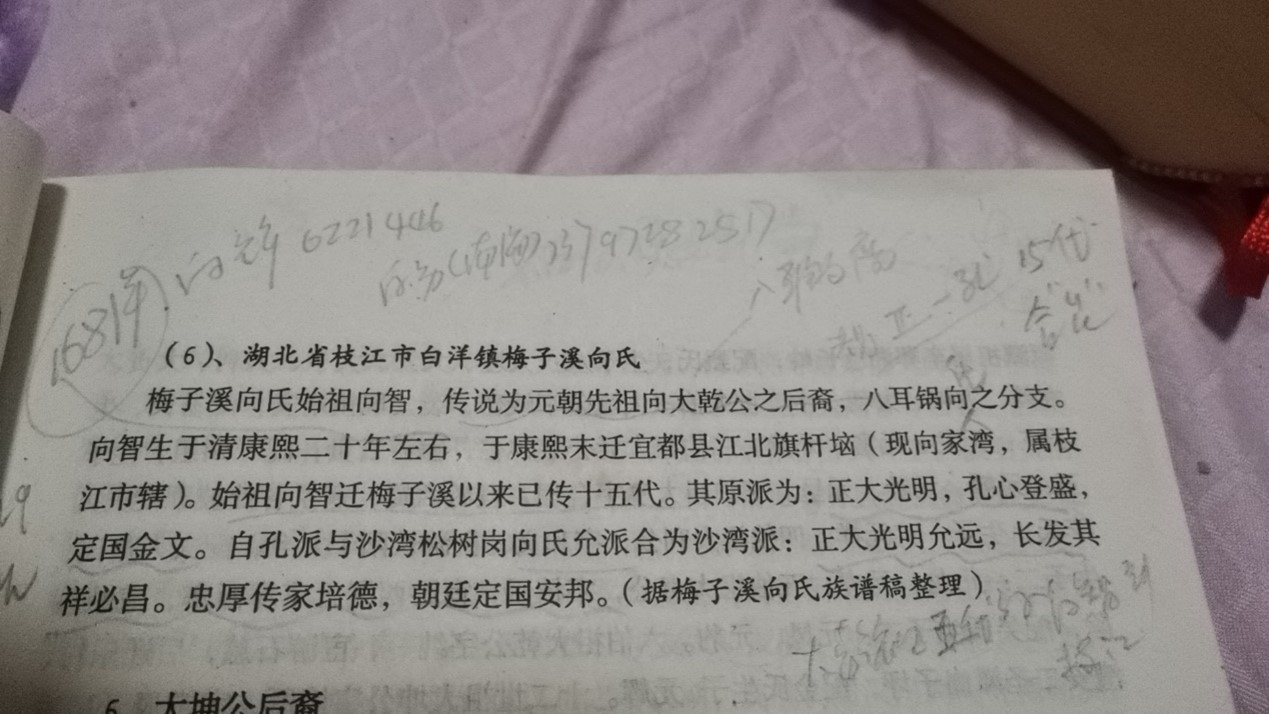 向 6221446
(1681年)
15代
(6)、湖北省枝江市白洋镇梅子溪向氏
梅子溪向氏始祖向智，传说为元朝先祖向大乾公之后裔，八耳锅向之分支。
向智生于清康熙二十年左右，于康熙末迁宜都县江北旗杆垴（现向家湾，属枝
江市辖）。始祖向智迁梅子溪以来已传十五代。其原派为：正大光明，孔心登盛，
定国金文。自孔派与沙湾松树岗向氏允派合为沙湾派：正大光明允远，长发其
祥必昌。忠厚传家培德，朝廷定国安邦。（据梅子溪向氏族谱稿整理）
6 大坤公后裔